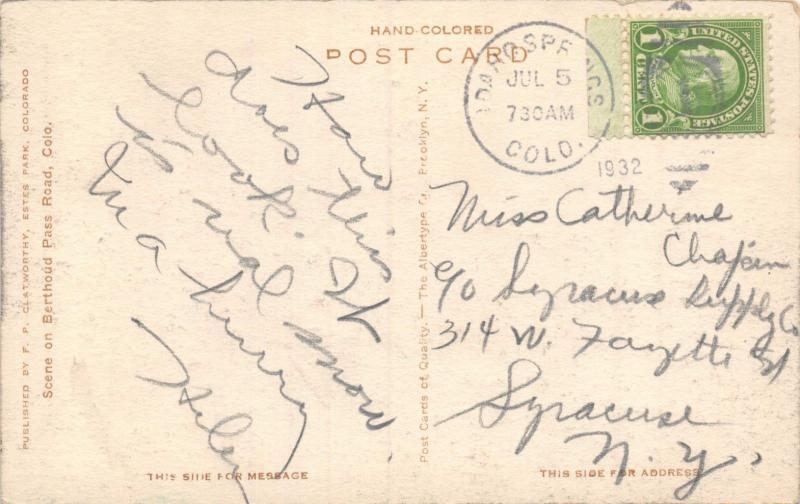 HAND-COLORED
POST CARD
PUBLISHED BY F. P. CLATWORTHY, ESTES PARK, COLORADO
Scene on Berthoud Pass Road, Colo.
How
does this
look. It
is real snow.
Im a hurry
Helen
Post Cards of Quality. — The Albertype Co., Brooklyn, N. Y.
IDAHO SPRINGS
JUL 5
730AM
COLO.
1932
UNITED STATES POSTAGE
1 CENT 1
Miss Catherine
Chapin
c/o Syracuse Supply Co
314 W. Fayette St
Syracuse
N. Y.
THIS SIDE FOR MESSAGE
THIS SIDE FOR ADDRESS